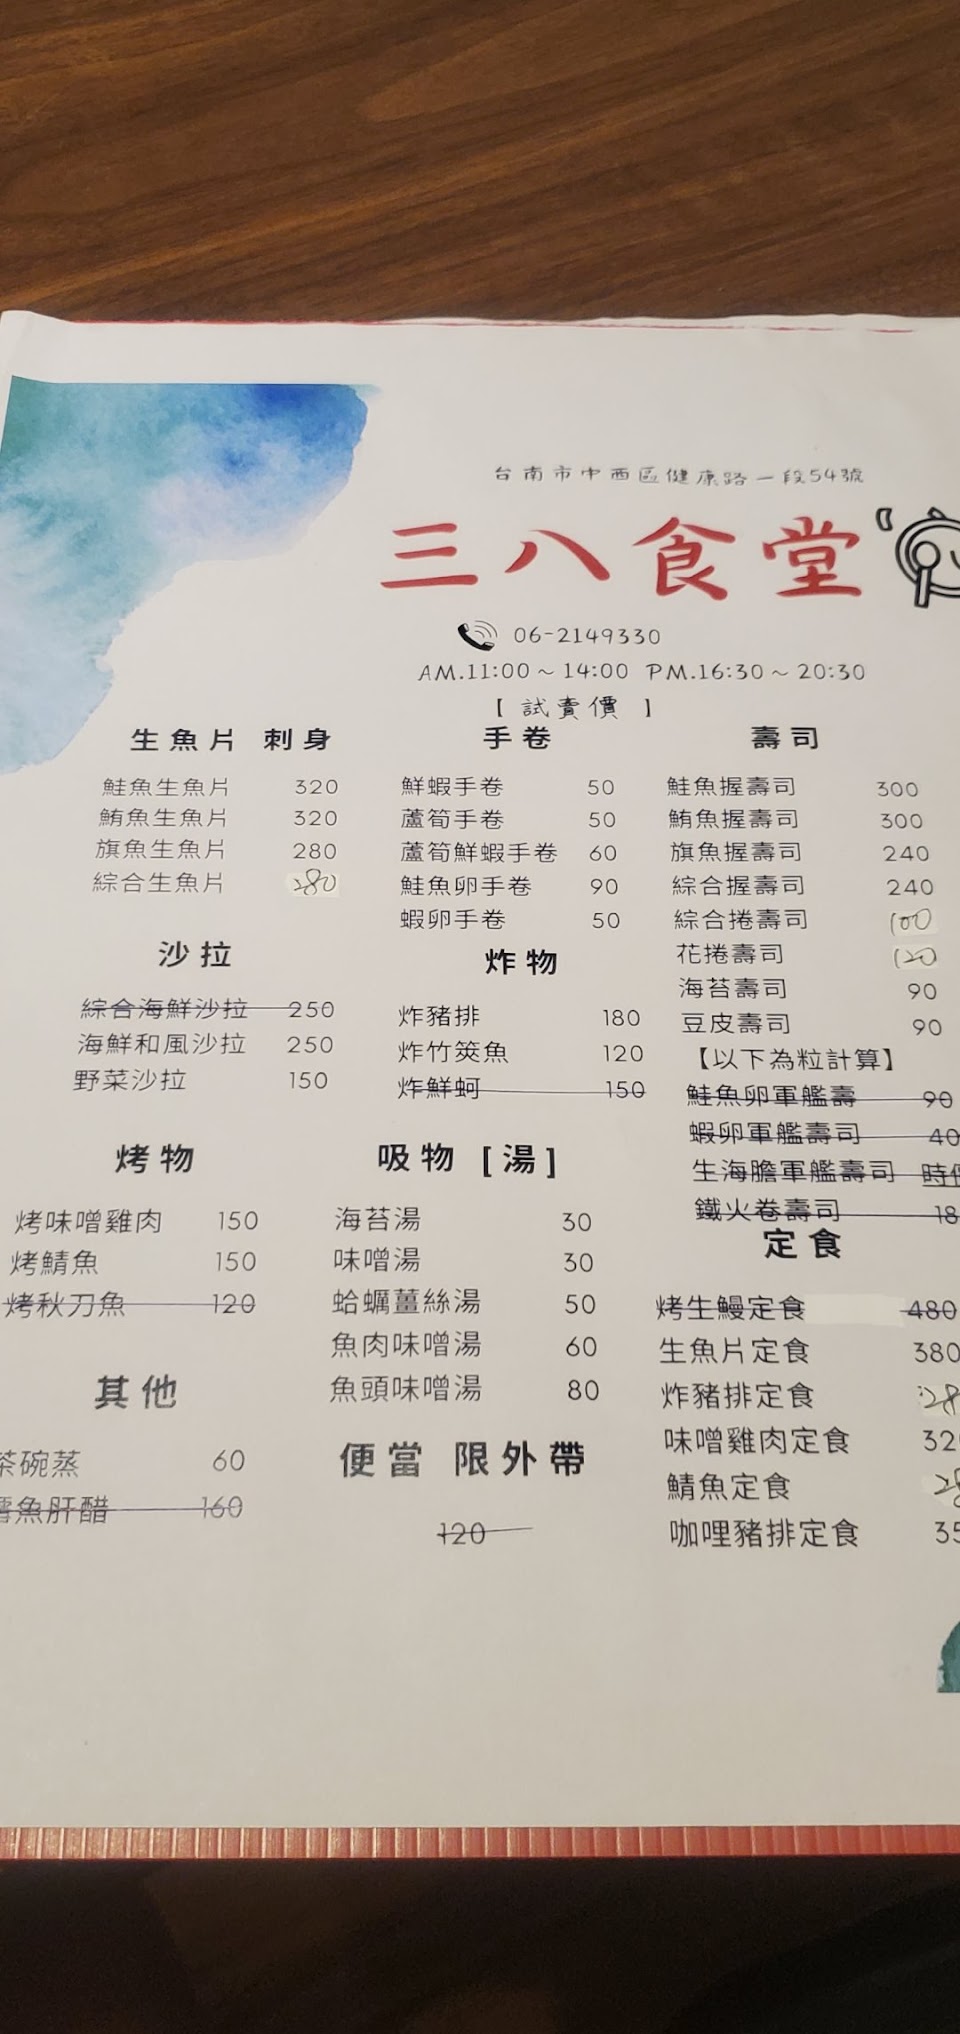 台南市中西區健康路一段54號
三八食堂
06-2149330
AM.11:00～14:00 PM.16:30～20:30
【試賣價】
生魚片 刺身
鮭魚生魚片 320
鮪魚生魚片 320
旗魚生魚片 280
綜合生魚片 280
沙拉
綜合海鮮沙拉 250
海鮮和風沙拉 250
野菜沙拉 150
烤物
烤味噌雞肉 150
烤鯖魚 150
烤秋刀魚 120
其他
茶碗蒸 60
魚肝醋 160
手卷
鮮蝦手卷 50
蘆筍手卷 50
蘆筍鮮蝦手卷 60
鮭魚卵手卷 90
蝦卵手卷 50
炸物
炸豬排 180
炸竹筴魚 120
炸鮮蚵 150
吸物 [湯]
海苔湯 30
味噌湯 30
蛤蠣薑絲湯 50
魚肉味噌湯 60
魚頭味噌湯 80
便當 限外帶
120
壽司
鮭魚握壽司 300
鮪魚握壽司 300
旗魚握壽司 240
綜合握壽司 240
綜合捲壽司 100
花捲壽司 120
海苔壽司 90
豆皮壽司 90
【以下為粒計算】
鮭魚卵軍艦壽 90
蝦卵軍艦壽司 40
生海膽軍艦壽司 時
鐵火卷壽司 18
定食
烤生鰻定食 480
生魚片定食 380
炸豬排定食 28
味噌雞肉定食 32
鯖魚定食 28
咖哩豬排定食 35